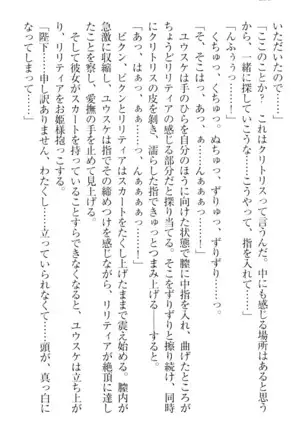 いただいたので……」
「ここのことか？　これはクリトリスって言うんだ。中にも感じる場所はあると思う
から、一緒に探していこうな……こうやって、指を入れて……」
「んふぅうっ……！」
　くちゅっ、くちゅっ。ぬちゅっ、ずりゅっ、ずりずりっ……。
「そ、そこはっ、あっ、ぁ……んぁぁぁっ……！」
　ユウスケは手のひらを自分のほうに向けた状態で膣に中指を入れ、曲げたところが
ちょうどリリティアの感じる部分だと探り当てる。そこをずりずりと擦り続け、同時
にクリトリスの皮を剝き、濡らした指できゅっとつまみ上げる――すると。
「あっ、はぁっ、ぁぁっ……んぁぁぁぁっ……！」
　ビクン、ビクンとリリティアはスカートをたくし上げたままで震え始める。膣内が
急激に収縮し、ユウスケは指でその締めつけを感じながら、リリティアが絶頂に達し
たことを察し、愛撫の手を止めて見上げる。
　そして彼女がスカートを持っていることすらできなくなると、ユウスケは立ち上が
り、リリティアをお姫様抱っこする。
「陛下……申し訳ありません、わたくし……立っていられなくて……頭が、真っ白に
なってしまって……！」